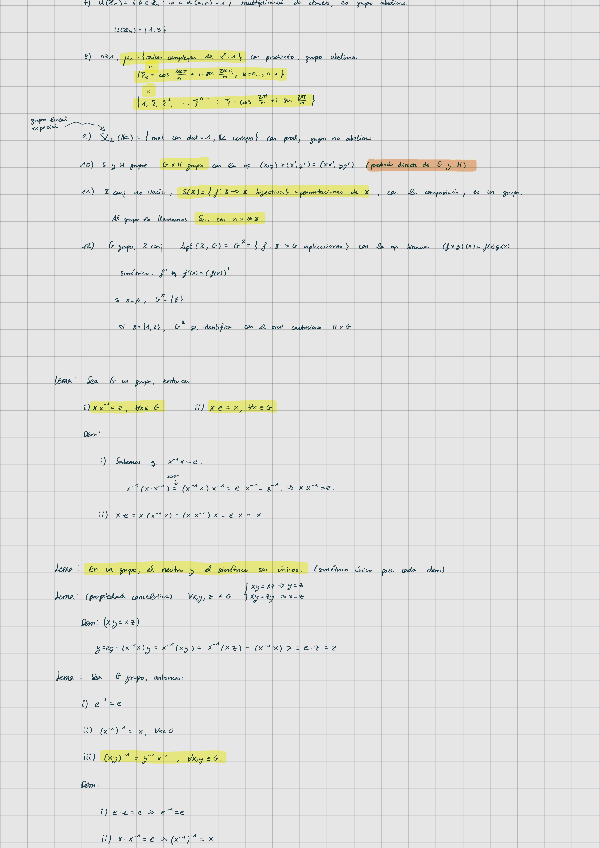 multiplicación de clases, es grupo abeliano
U(Z₄) = {1,3}
8) n≥1, μₙ = {raíces complejas de zⁿ=1} con producto, grupo abeliano
{zₖ = cos 2kπ/n + i sen 2kπ/n, k=0,...,n-1}
{1, ξ, ξ², ..., ξⁿ⁻¹ : ξ = cos 2π/n + i sen 2π/n}
grupo lineal especial
9) (K) = {mat con det = 1, K cuerpo} con prod, grupo no abeliano
10) G y H grupos G×H grupo con la op (x,y)*(x',y') = (xx', yy') (producto directo de G y H)
11) X conj no vacío, S(X) = {f: X → X biyectivas} = permutaciones de X, con la composición, es un grupo.
Al grupo lo llamamos Sₙ, con n = #X
12) G grupo, X conj, Apl(X, G) = Gˣ = {f: X → G aplicaciones} con la op binaria (f*g)(x) = f(x)g(x)
Simétrico: f' es f'(x) = (f(x))'
Si X=∅, Gˣ = {e}
Si X={1,2}, Gˣ se identifica con el prod cartesiano G×G
Lema: Sea G un grupo, entonces
i) xx⁻¹ = e, ∀x∈G ii) xe = x, ∀x∈G
Dem:
i) Sabemos q x⁻¹x = e.
x⁻¹(x·x⁻¹) = (x⁻¹x)x⁻¹ = e x⁻¹ = x⁻¹ ⇒ xx⁻¹ = e.
ii) xe = x(x⁻¹x) = (xx⁻¹)x = ex = x
Lema: En un grupo, el neutro y el simétrico son únicos. (simétrico único para cada elem)
Lema: (propiedad cancelativa) ∀x,y,z ∈ G { xy=xz ⇒ y=z
xy=zy ⇒ x=z
Dem: (xy=xz)
y=ey=(x⁻¹x)y = x⁻¹(xy) = x⁻¹(xz) = (x⁻¹x)z = e·z = z
Lema: Sea G grupo, entonces:
i) e⁻¹ = e
ii) (x⁻¹)⁻¹ = x, ∀x∈G
iii) (xy)⁻¹ = y⁻¹x⁻¹, ∀x,y∈G
Dem:
i) e·e = e ⇒ e⁻¹ = e
ii) x·x⁻¹ = e ⇒ (x⁻¹)⁻¹ = x